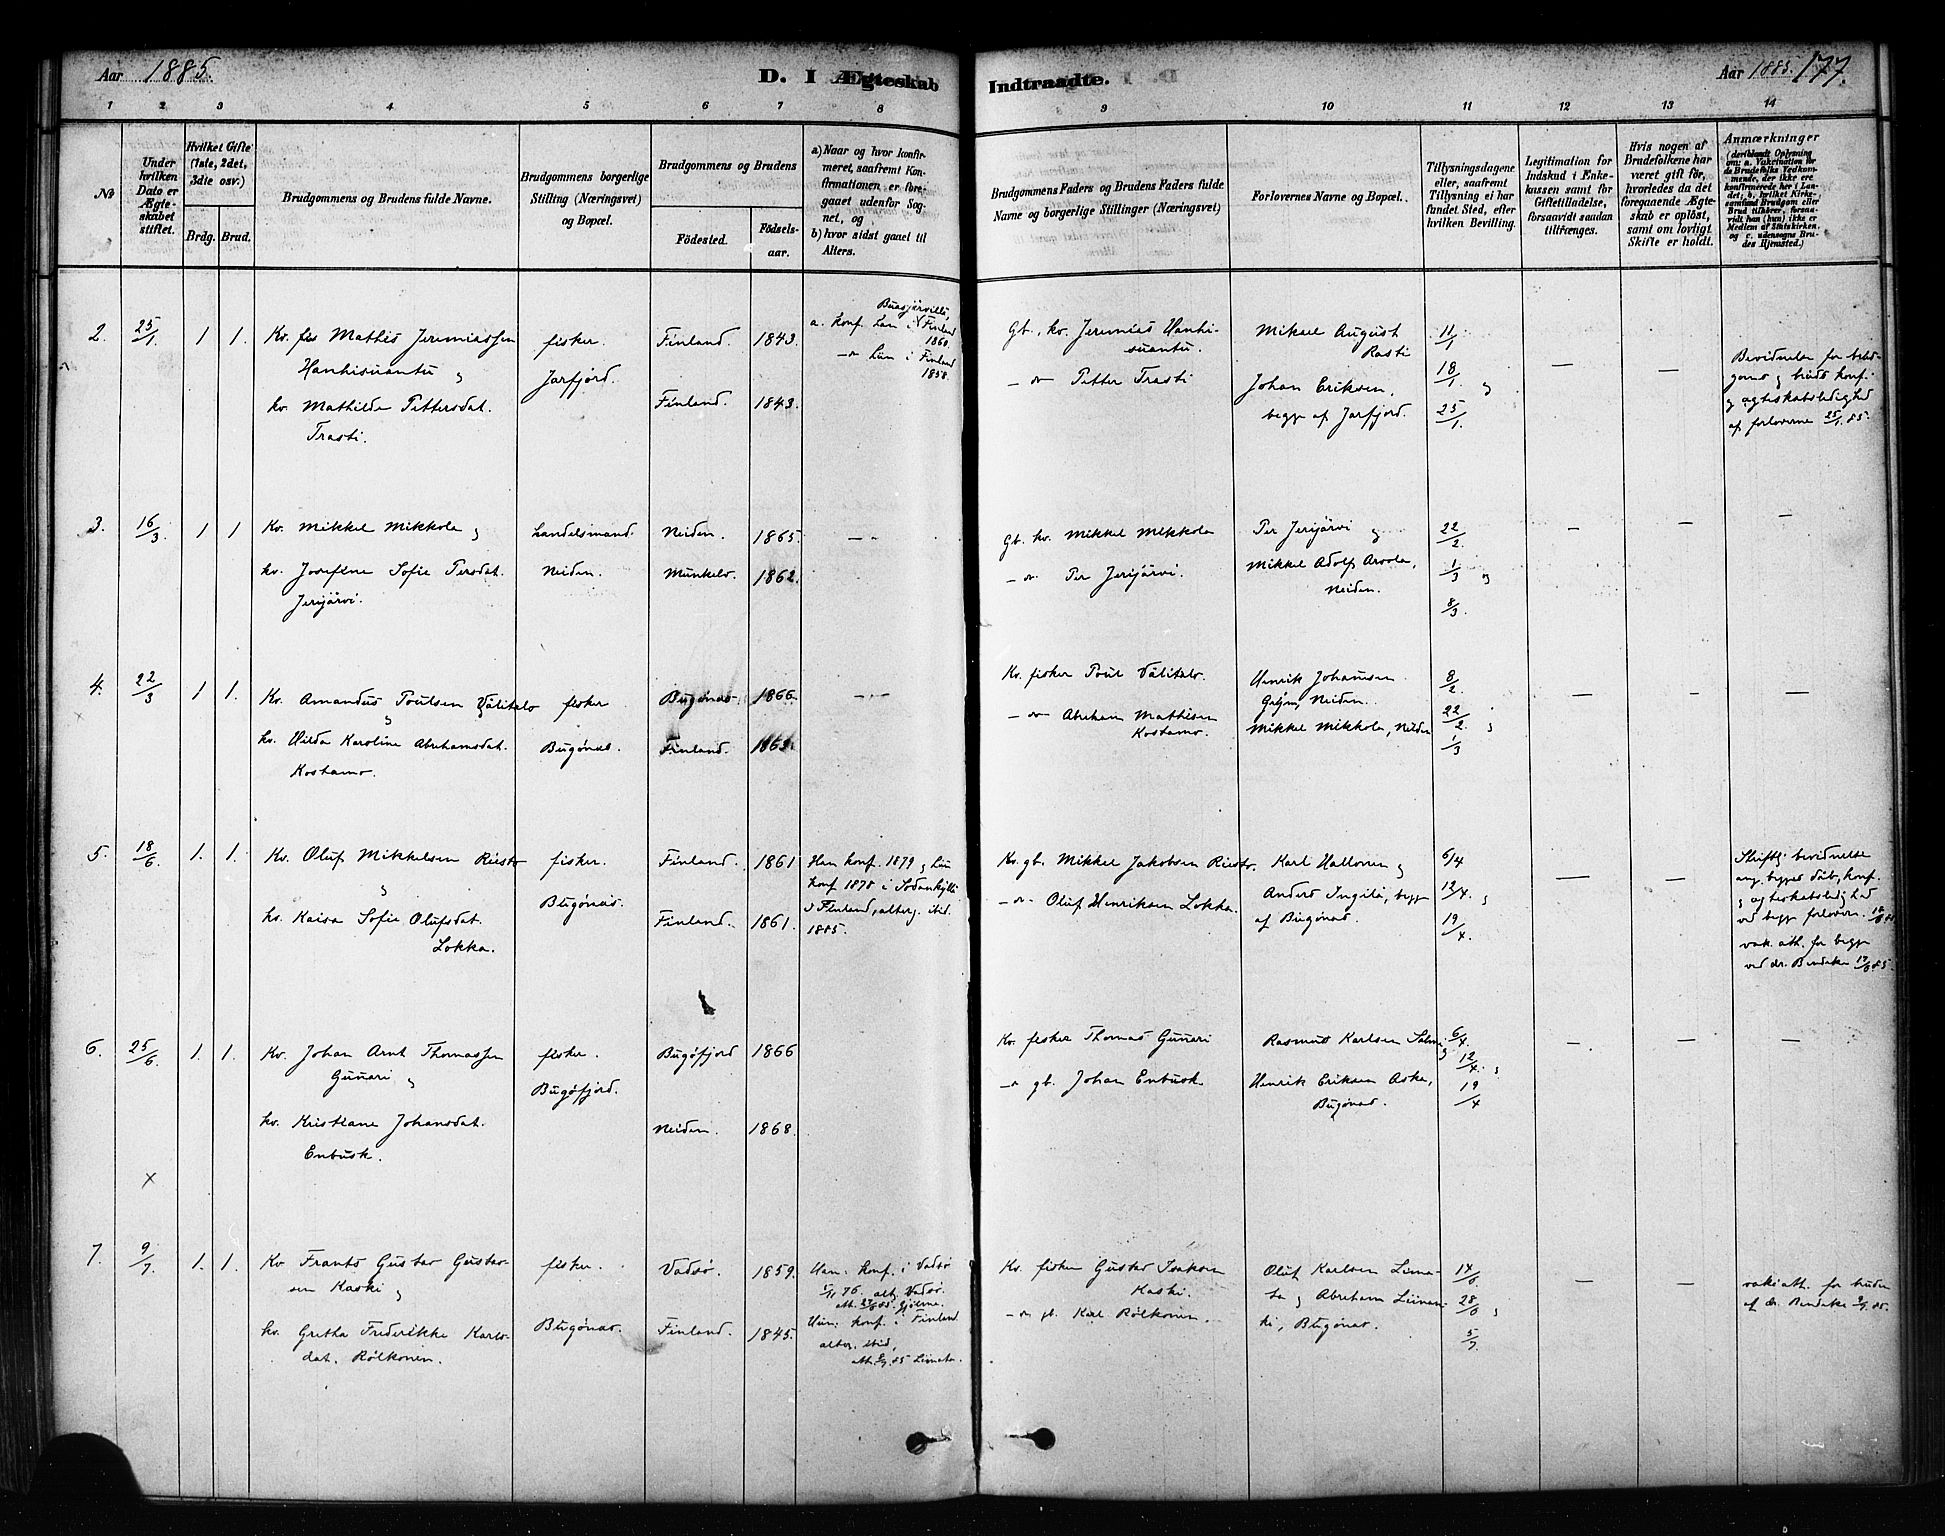 Aar 1885.
D. I Ægteskab Indtraadte.
Aar 1885. 177.
1 2 3 4 5 6 7 8 9 10 11 12 13 14
No
Under hvilken Dato er Ægteskabet stiftet.
Hvilket Gifte (1ste, 2det, 3die osv.)
Brdg. Brud.
Brudgommens og Brudens fulde Navne.
Brudgommens borgerlige Stilling (Næringsvei) og Bopæl.
Brudgommens og Brudens
Födested.
Födselsaar.
a) Naar og hvor konfirmeret, saafremt Konfirmationen er foregaaet udenfor Sognet, og
b) hvor sidst gaaet til Alters.
Brudgommens Faders og Brudens Faders fulde Navne og borgerlige Stillinger (Næringsvei)
Forlovernes Navne og Bopæl.
Tillysningsdagene eller, saafremt Tillysning ei har fundet Sted, efter hvilken Bevilling.
Legitimation for Indskud i Enkekassen samt for Giftetilladelse, forsaavidt saadan tiltrænges.
Hvis nogen af Brudefolkene har været gift för, hvorledes da det foregaaende Ægteskab er oplöst, samt om lovligt Skifte er holdt.
Anmærkninger
(deriblandt Oplysning om: a. Vakcination for de Brudefolks Vedkommende, der ikke ere konfirmerede her i Landet; b. hvilket Kirkesamfund Brudgom eller Brud tilhörer, forsaavidt han (hun) ikke er Medlem af Statskirken. og c. udensogns Brudes Hjemsted.)
2. 25/1 1 1. Kv. fis Mathis Jeremiassen
Hanhisuantu og
kv. Mathilde Pettersdat.
Trasti.
fisker.
Jarfjord.
Finland. 1843.
Finland. 1843.
a. konf. han i Finland
1860.
– hun i Finland
1858.
Gb. kv. Jeremias Hanhi-
suantu.
– Petter Trasti
Mikael August
Rasti
Johan Eriksen,
begge af Jarfjord.
11/1
18/1 og
25/1.
— —
Bevidnelse for brud-
goms og bruds konf.
og ægteskabsledighed
af forloverne 25/1 85.
3. 16/3 1 1 Kv. Mikkel Mikkola og
kv. Josefine Sofie Persdat.
Jerijärvi.
Landelsmand.
Neiden.
Neiden. 1865.
Munkelv. 1862.
Gb. kv. Mikkel Mikkola
– Per Jerijärvi.
Per Jerijärvi og
Mikkel Adolf Arvola,
Neiden.
22/2.
1/3 og
8/3.
— — —
4. 22/3 1 1. Kv. Amandus Poulsen Välitalo
og
kv. Hilda Karoline Abrahamsdat.
Kostamo.
fisker
Bugönæs.
Bugönæs. 1866.
Finland.
Kv. fisker Poul Välitalo.
– Abraham Mathisen
Kostamo.
Henrik Johansen
Neiden.
Mikkel Mikkola, Neiden
8/2.
22/2. og
1/3
— — —
5. 18/6. 1. 1. Kv. Oluf Mikkelsen Riesto
og
kv. Kaisa Sofie Olufsdat.
Lokka.
fisker.
Bugönæs.
Finland. 1861
Finland. 1861.
Han konf. 1879 og hun
konf 1878 i Sodankylä
i Finland, alterg. ibid.
1885.
Kv. gb. Mikkel Jakobsen Riesto.
– Oluf Henriksen Lokka.
Karl Hallonen og
Anders Ingilä, begge
af Bugönæs.
6/4
12/4. og
19/4.
— —
Skriftl. bevidnelse
ang. begges dåb, konf.
og ægteskabsledighed
ved begge forlovere.
vak. att. for begge
ved dr.
6. 25/6. 1. 1. Kv. Johan Arnt Thomassen
Gunari og
kv. Kristiane Johansdat.
Enbusk.
fisker.
Bugöfjord.
Bugöfjord 1866
Neiden. 1868.
Kv. fisker Thomas Gunari
gb. Johan Enbusk
Rasmus Karlsen Salmi
Henrik Eriksen Aska,
Bugönæs.
6/4.
12/4. og
19/4
— — —
×
7. 9/7. 1. 1. Kv Frants Gustav Gustav-
sen Kaski og
kv. Gretha Frederikke Karls-
dat. Rölkonen.
fisker.
Bugönæs.
Vadsö. 1859.
Finland. 1845.
Han: konf. i Vadsö
alterg. Vadsö.
Hun: konf. i Finland
alter. ibid,
Kv. fisker Gustav Isaksen
Kaski.
– gb. Karl Rölkonen.
Oluf Karlsen Lima-
ta og Abraham Liinan-
ki, Bugönæs.
14/6.
28/6 og
5/7.
— —
vakc att. for bruden
af dr.